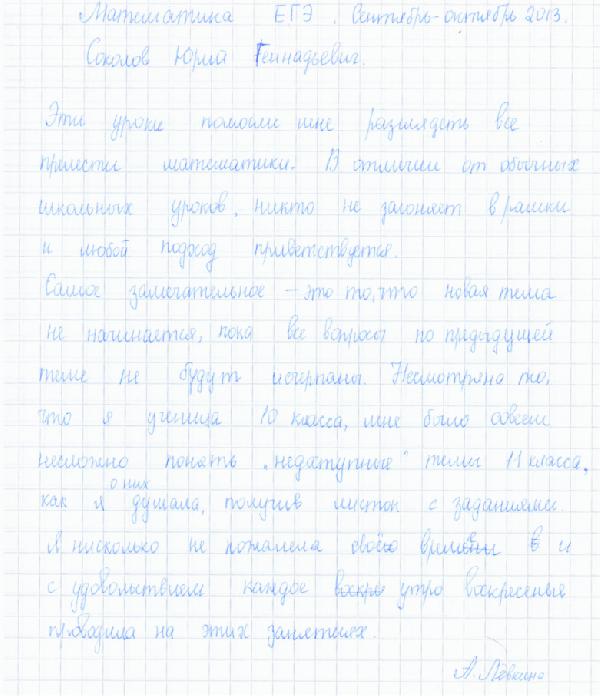 Математика ЕГЭ. Сентябрь-октябрь 2013.
Соколов Юрий Геннадьевич.
Эти уроки помогли мне разглядеть все
прелести математики. В отличии от обычных
школьных уроков, никто не загоняет в рамки
и любой подход приветствуется.
Самое замечательное – это то, что новая тема
не начинается, пока все вопросы по предыдущей
теме не будут исчерпаны. Несмотря на то,
что я ученица 10 класса, мне было совсем
несложно понять „недоступные" темы 11 класса,
о них
как я думала, получив листок с заданиями.
Я нисколько не пожалела своего времени и
с удовольствием каждое воскре утро воскресенья
проводила на этих занятиях.
А. Лёвкина